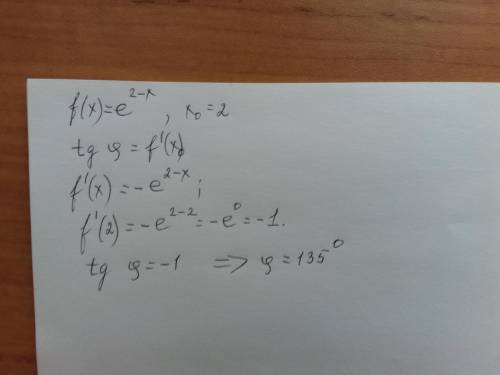 f(x)=e^{2-x}, x₀=2
tg φ = f'(x₀)
f'(x) = -e^{2-x};
f'(2) = -e^{2-2} = -e^0 = -1.
tg φ = -1 => φ = 135^0